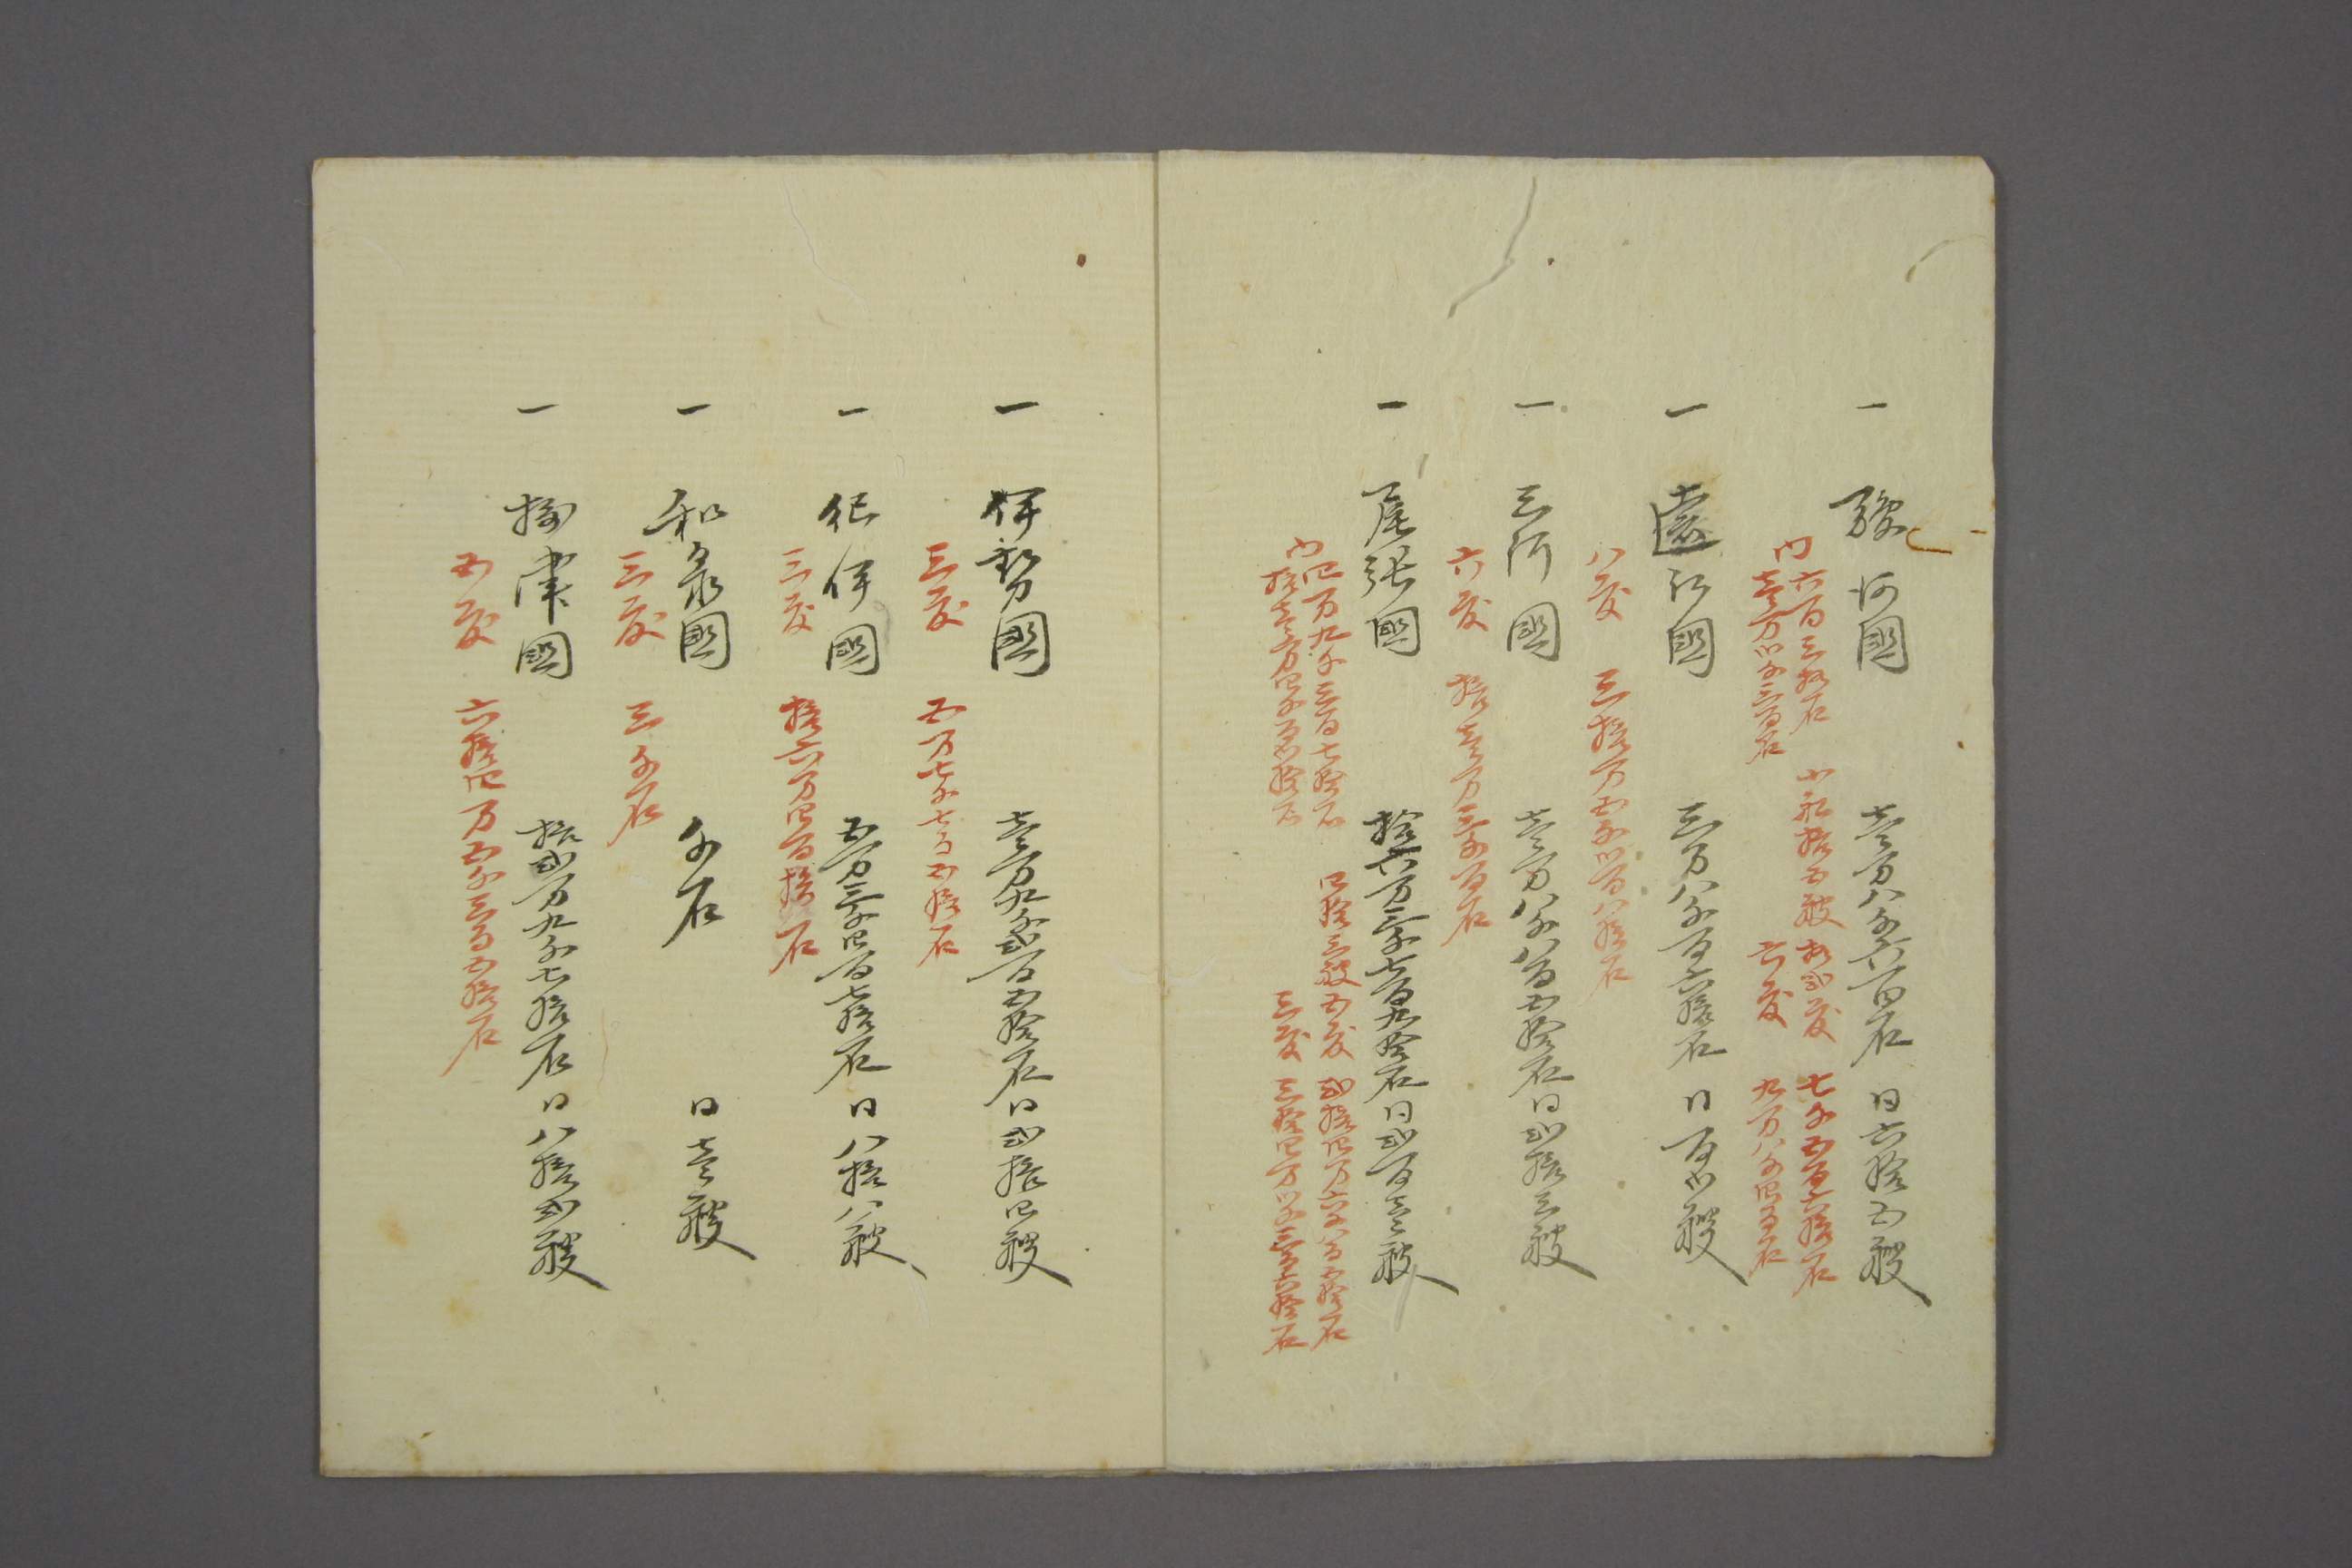 一 駿河國 壱万八千六百石 同六拾五艘
内 六百三拾石 小船拾五艘 拾弐度 七千五百六拾石
壱万弐千三百石 九万八千四百石
一 遠江國 三万八千百六拾石 同百弐艘
八度 三拾万五千弐百八拾石
一 三河國 壱万八千八百五拾石 同弐拾三艘
六度 拾壱万三千百石
一 尾張國 拾六万三千四百九拾石 同弐百壱艘
内 四万九千三百七拾石 四拾三艘 五度 弐拾四万六千八百五拾石
拾壱万四千百弐拾石 三度 三拾四万弐千三百六拾石
一 伊勢國 壱万九千弐百五拾石 同弐拾四艘
三度 五万七千七百五拾石
一 紀伊國 五万三千四百七拾石 同八拾八艘
三度 拾六万四百拾石
一 和泉國 千石 同壱艘
三度 三千石
一 摂津國 拾弐万九千七拾石 同八拾弐艘
五度 六拾四万五千三百五拾石